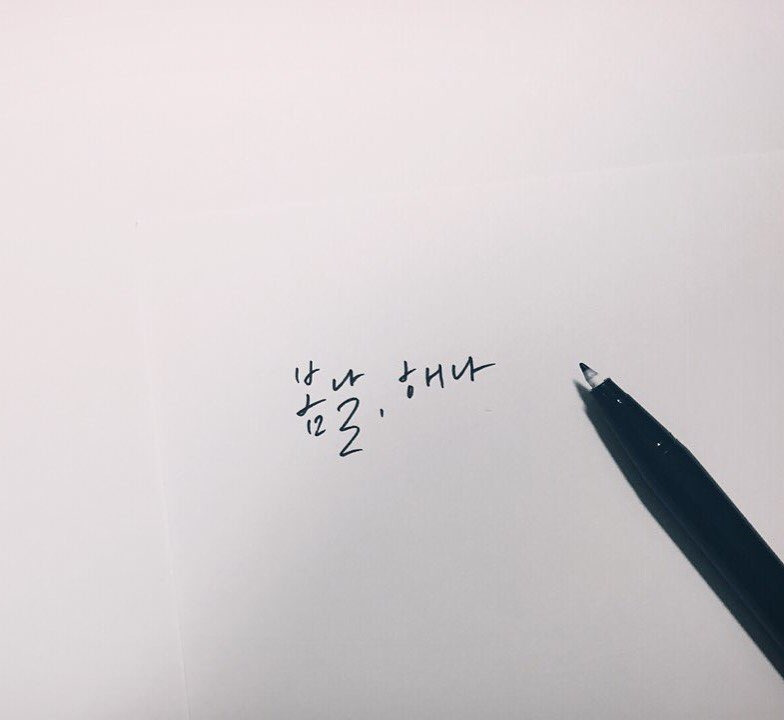 봄날, 해나